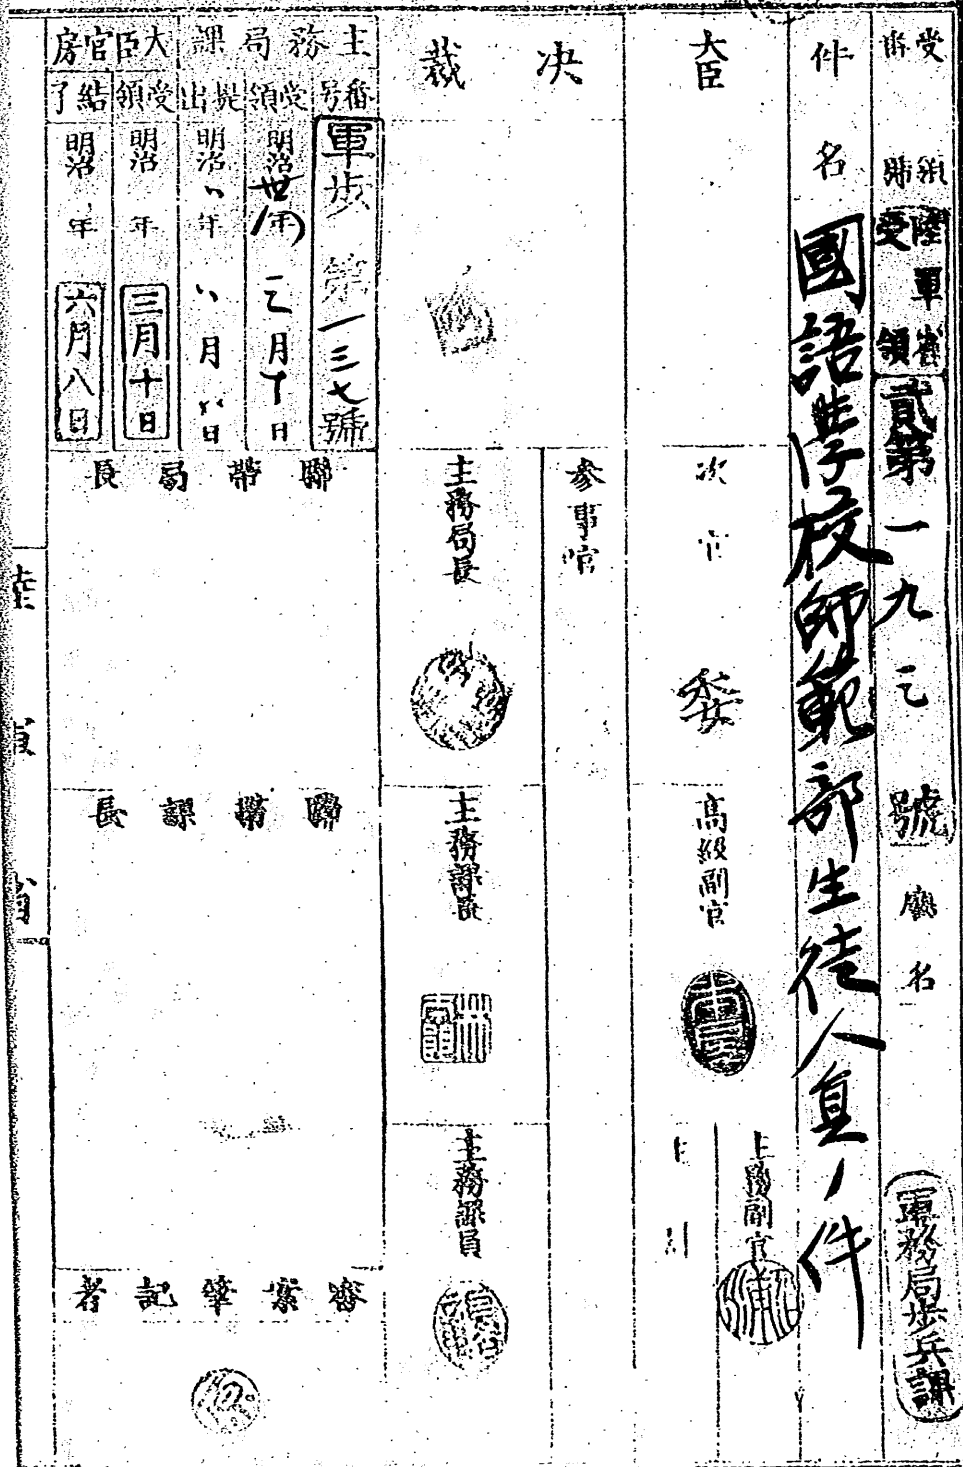 受領番号
陸軍省受領
貳第一九三號
廳名
軍務局歩兵課
件名
國語学校師範部生徒人員ノ件
大臣
次官
高級副官
主務副官
決裁
参事官
主務局長
主務課長
主務課員
主務局課
番号
軍歩第一三七號
受領
明治卅一年二月十日
提出
明治〃年〃月〃日
大臣官房
受領
明治 年三月十日
結了
明治 年六月八日
聯帯局長
聯帯課長
審案筆記者
陸軍省